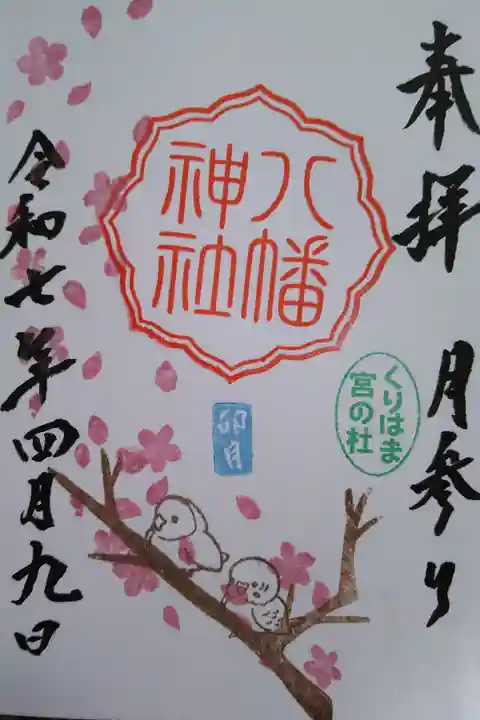 奉拝 月参り
くりはま
宮の杜
八幡
神社
卯月
令和七年四月九日